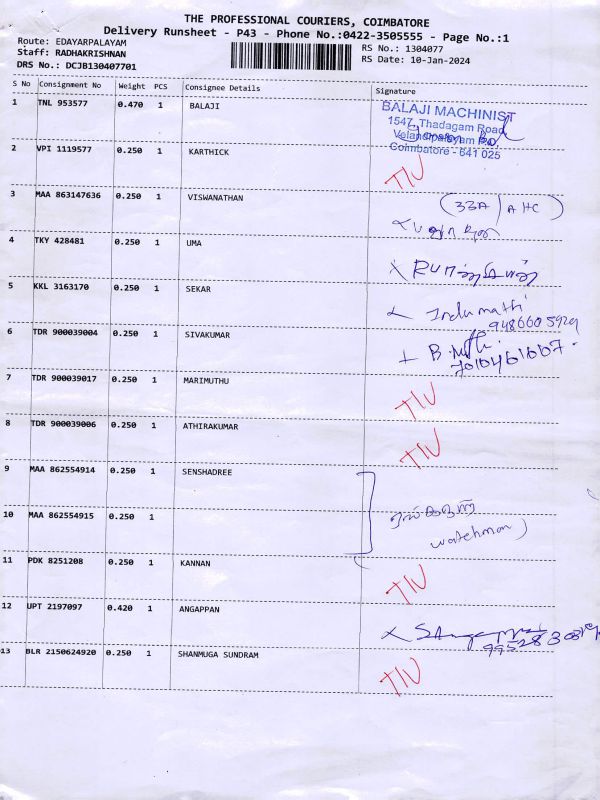 THE PROFESSIONAL COURIERS, COIMBATORE
Delivery Runsheet - P43 - Phone No.:0422-3505555 - Page No.:1
Route: EDAYARPALAYAM
Staff: RADHAKRISHNAN
DRS No.: DCJB130407701
RS No.: 1304077
RS Date: 10-Jan-2024
S No Consignment No Weight PCS Consignee Details Signature
1 TNL 953577 0.470 1 BALAJI
BALAJI MACHINIST
1547, Thadagam Road
Velandipalayam Po,
Coimbatore - 641 025
2 VPI 1119577 0.250 1 KARTHICK TIU
3 MAA 863147636 0.250 1 VISWANATHAN 33A / AHC
4 TKY 428481 0.250 1 UMA
5 KKL 3163170 0.250 1 SEKAR Indumathi
6 TDR 900039004 0.250 1 SIVAKUMAR
7 TDR 900039017 0.250 1 MARIMUTHU TIU
8 TDR 900039006 0.250 1 ATHIRAKUMAR TIU
9 MAA 862554914 0.250 1 SENSHADREE
10 MAA 862554915 0.250 1 watchman
11 PDK 8251208 0.250 1 KANNAN TIU
12 UPT 2197097 0.420 1 ANGAPPAN
13 BLR 2150624920 0.250 1 SHANMUGA SUNDRAM TIU